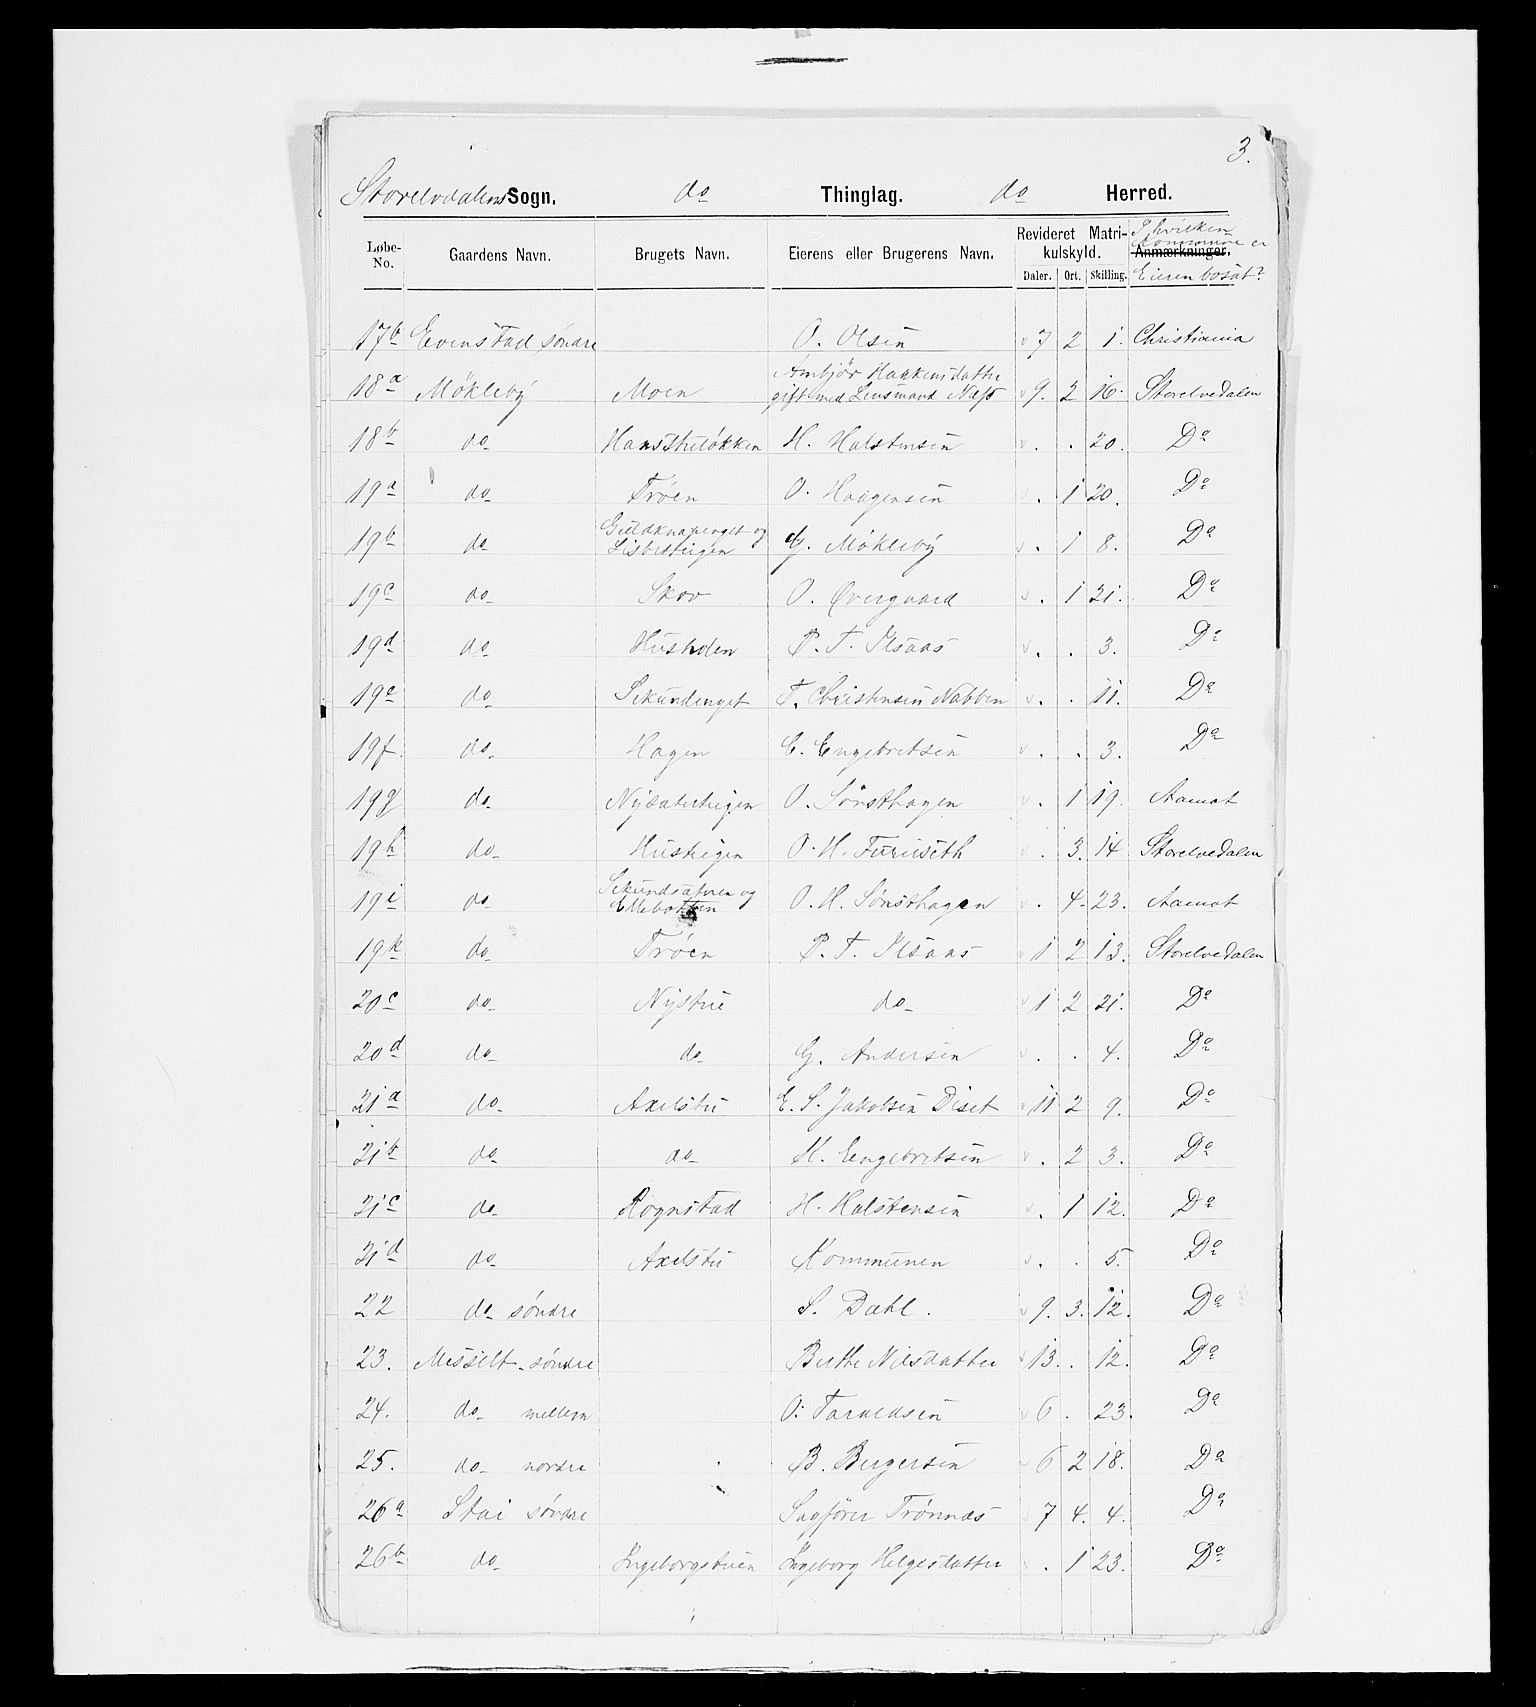 3.
Storelvdalens Sogn. do Thinglag. do Herred.
Løbe-No. Gaardens Navn. Brugets Navn. Eierens eller Brugerens Navn. Revideret Matrikulskyld. Daler. Ort. Skilling. Anmærkninger. I hvilken Kommune er Eieren bosat?
17b Evenstad søndre O. Olsen 7 2 1. Christiania
18a Møkleby Moen Ambjør Haakensdatter gift med Lensmand Næss 9. 2 16. Storelvedalen
18b do Hansstuløkken H. Halstensen . . 20. Do
19a do Trøen O. Haagensen . 1 20. Do
19b do Guldknapenget og Lisbetteigen G. Møkleby . 1 8. Do
19c do Skov O. Øvergaard . 1 21. Do
19d do P. T. Ilsaas . . 3. Do
19e do Sekundenget T. Christensen Nabben . . 11. Do
19f do Hagen E. Engebretsen . . 3. Do
19g do Nysæterteigen O. Sønsthagen . 1 19. Aamot
19h do Husteigen O. H. Furuseth . 3. 14 Storelvedalen
19i do og O. H. Sønsthagen . 4. 23. Aamot
19k do Trøen P. T. Ilsaas 1 2 13. Storelvedalen
20c do Nystue do 1 2 21. Do
20d do do G. Andersen . . 4. Do
21a do Axelstu E. S. Jakobsen Diset 11 2 9. Do
21b do do K. Engebretsen . 2 3. Do
21c do Rognstad H. Halstensen . 1 12. Do
21d do Axelstu Kommunen . . 5. Do
22 do søndre S. Dahl. 9. 3. 12. Do
23. Messelt søndre Berthe Nilsdatter 13. . 12. Do
24. do mellem O. Taraldsen 6 . 23. Do
25. do nordre B. Bergersen 6 2 18. Do
26a Stai søndre Sagfører Trønnæs 7 4. 4. Do
26b do Ingeborgstuen Ingeborg Helgesdatter . 1 23. Do